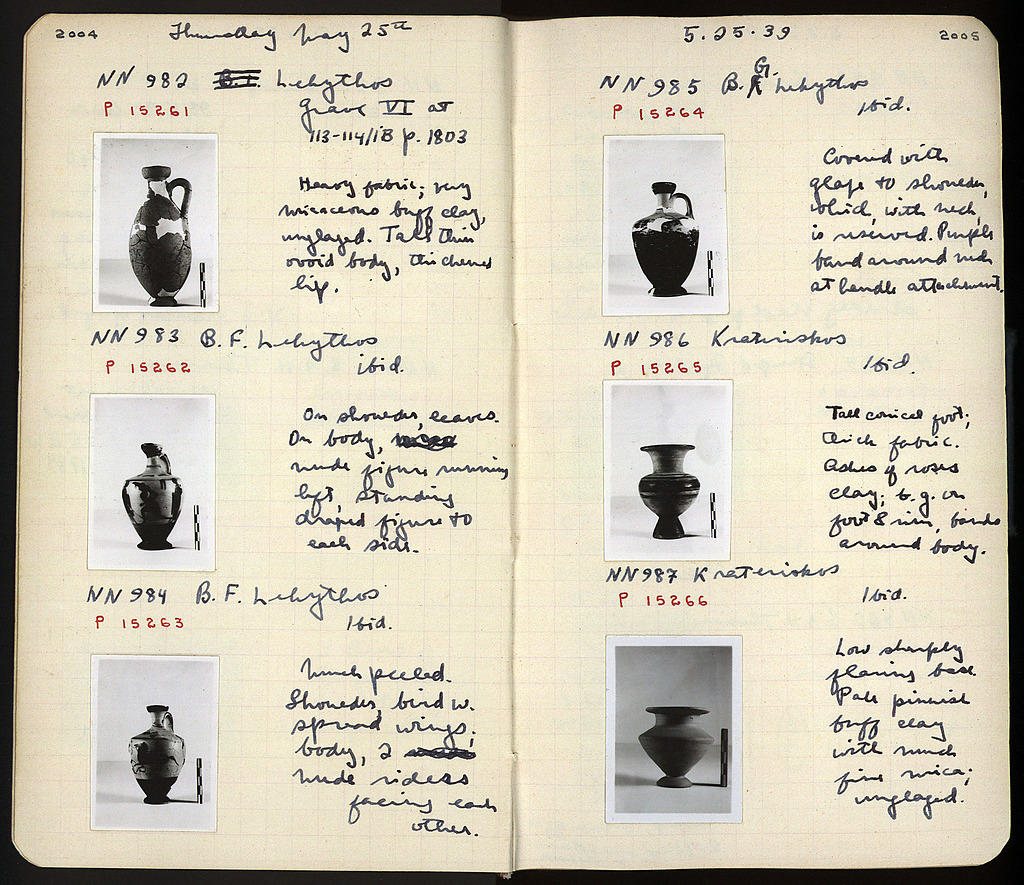 2004
Thursday May 25th
NN 982 B.F. Lekythos
P 15261
Grave VI at
113-114/IB p. 1803
Heavy fabric; very
micaceous buff clay,
unglazed. Tall thin
ovoid body, thickened
lip.
NN 983 B.F. Lekythos
P 15262
ibid.
On shoulder, leaves.
On body,
nude figure running
left, standing
draped figure to
each side.
NN 984 B.F. Lekythos
P 15263
Ibid.
Much peeled.
Shoulder, bird w.
spread wings;
body, 2
nude riders
facing each
other.
5.25.39
2005
NN 985 B.G. Lekythos
P 15264
Ibid.
Covered with
glaze to shoulder,
which, with neck,
is reserved. Purple
band around neck
at handle attachment.
NN 986 Krateriskos
P 15265
Ibid.
Tall conical foot;
thick fabric.
Ashes of roses
clay; b.g. on
foot & rim, bands
around body.
NN 987 Krateriskos
P 15266
Ibid.
Low sharply
flaring base.
Pale pinkish
buff clay
with much
fine mica;
unglazed.